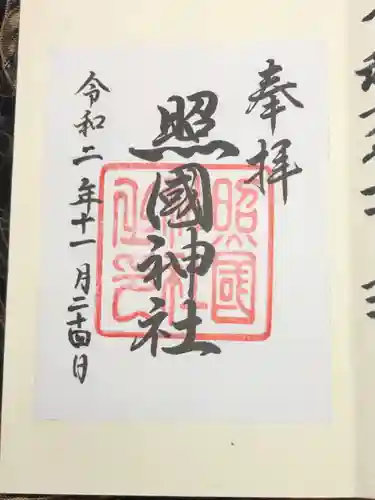 奉拝
照國神社
令和二年十一月二十四日
照國神社之印